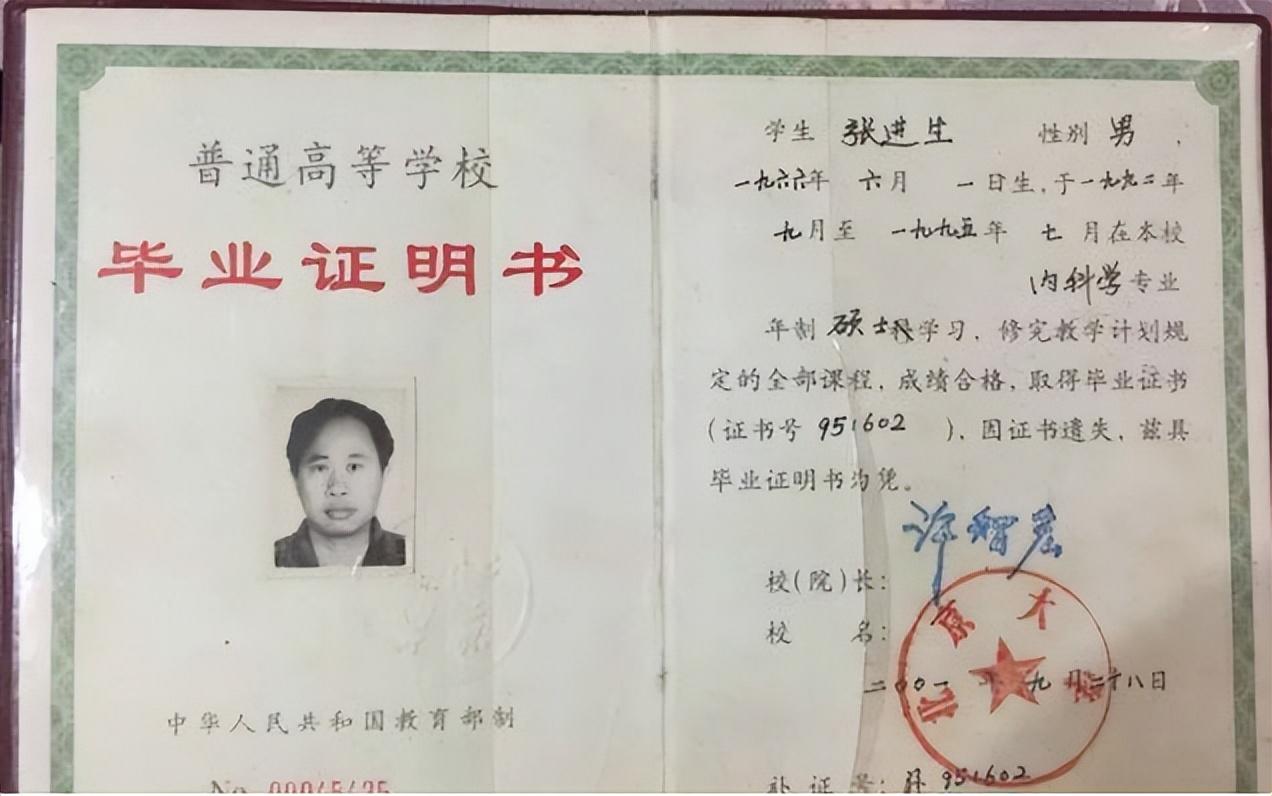 普通高等学校
毕业证明书
中华人民共和国教育部制
No
学生 张进生 性别 男 ,
一九六六年 六月 一日生,于一九九二年
九月至 一九九五年 七 月在本校
内科学专业
年制 硕士 学习,修完教学计划规
定的全部课程,成绩合格,取得毕业证书
(证书号 951602 ),因证书遗失,兹具
毕业证明书为凭。
许智宏
校(院)长:
校 名:
北京大学
二〇〇一年九月二十八日
补 证 号: 951602